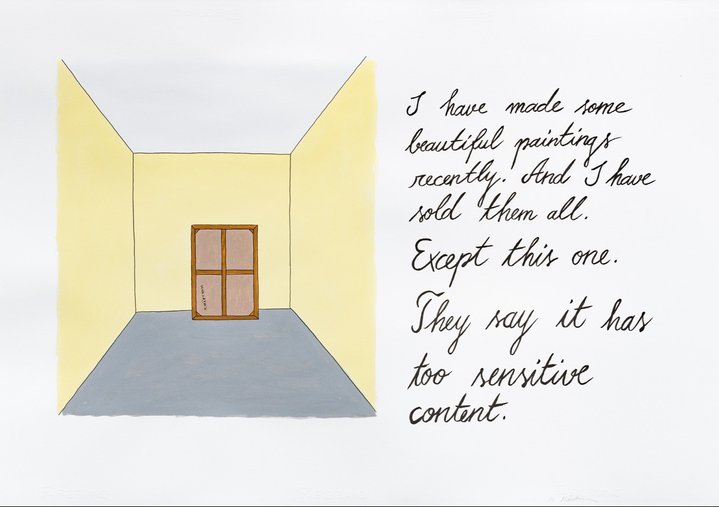 I have made some
beautiful paintings
recently. And I have
sold them all.
Except this one.
They say it has
too sensitive
content.